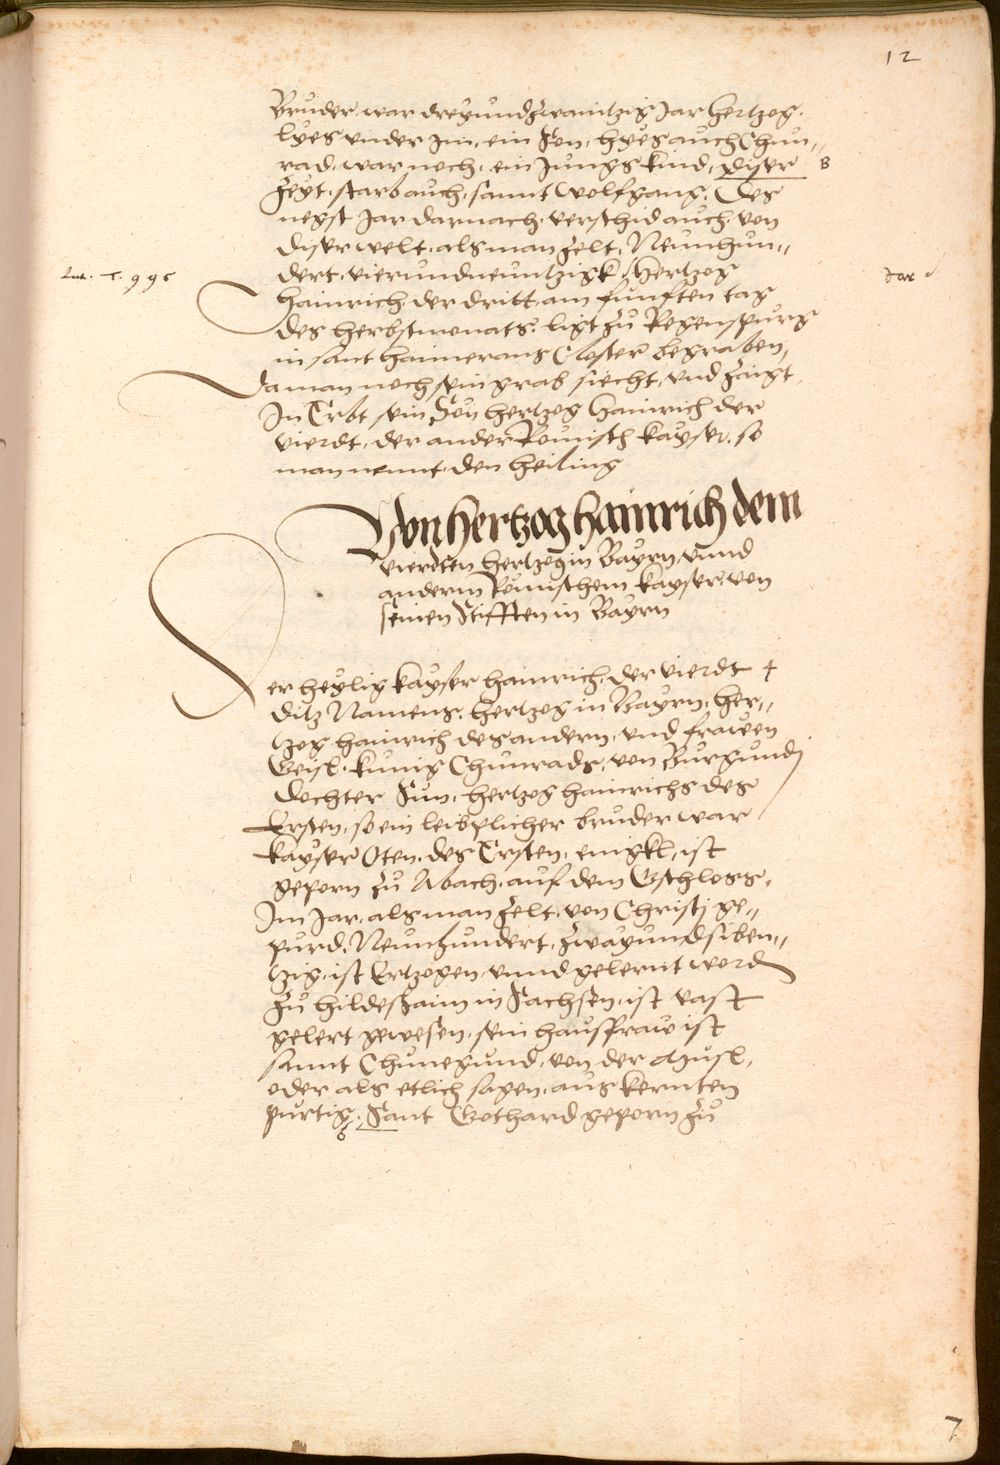 12
Bruder. war dreyundzwaintzig Jar hertzog.
lyes under Im. ein Son. hyes auch Chun„
rad. war noch. ein Jungs kind, Diser B
Zeyt. starb auch. sannt Wolfgang. Des
negst Jar darnach. verschid auch. von
diser welt. als man zelt. Neunhun„
dert. vierundneuntzigk. Hertzog
Hainrich. der dritt. am funften tag
des herbstmonats. ligt zu Regenspurg
in sant Haimerans Closter begraben,
Da man noch sein grab siecht, und zaigt.
In Erbt sein Son hertzog Hainrich der
vierdt. der ander Römisch kayser. so
man nennt. den heiling
Von hertzog hainrich dem
vierdten hertzog in Bayrn, unnd
anderm Römischem kayser. von
seinen Stifften in Bayrn
Der heylig kayser Hainrich. der vierdt +
ditz Namens. hertzog in Bayrn. her„
tzog hainrich des andern, und frawen
Geisl. kunig Chunrads, von Burgundj
dochter Sun. hertzog hainrichs des
Ersten, so ein leibplicher bruder war
kayser Oten. des Ersten. enigkl, ist
geporn zu Abach. auf dem Gschloss.
Im Jar. als man zelt. von Christj ge„
purd. Neunhundert. zwayundsiben„
tzig. ist Ertzogen. unnd gelernt word
zu hildeshaim in Sachsen. ist vast
gelert gewesen. sein hausfraw ist
sannt Chunegund. von der Musl.
oder als etlich sagen. aus kernten
purtig. Sant Gothard geporn zu
7